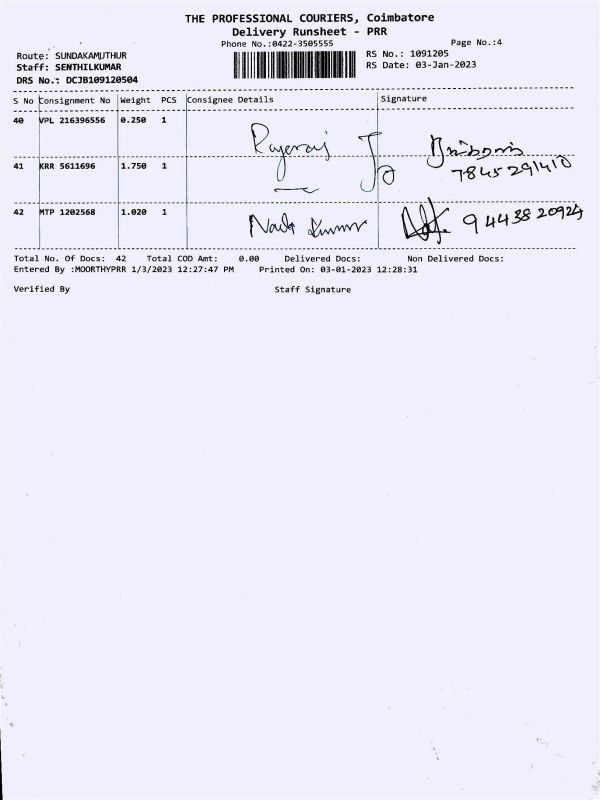 THE PROFESSIONAL COURIERS, Coimbatore
Delivery Runsheet - PRR
Phone No.:0422-3505555
Page No.:4
Route: SUNDAKAMUTHUR
RS No.: 1091205
Staff: SENTHILKUMAR
RS Date: 03-Jan-2023
DRS No.: DCJB109120504
S No Consignment No Weight PCS Consignee Details Signature
40 VPL 216396556 0.250 1
Rajeraj
41 KRR 5611696 1.750 1
7845291410
42 MTP 1202568 1.020 1
Kumar 9443820924
Total No. Of Docs: 42 Total COD Amt: 0.00 Delivered Docs: Non Delivered Docs:
Entered By :MOORTHYPRR 1/3/2023 12:27:47 PM Printed On: 03-01-2023 12:28:31
Verified By Staff Signature